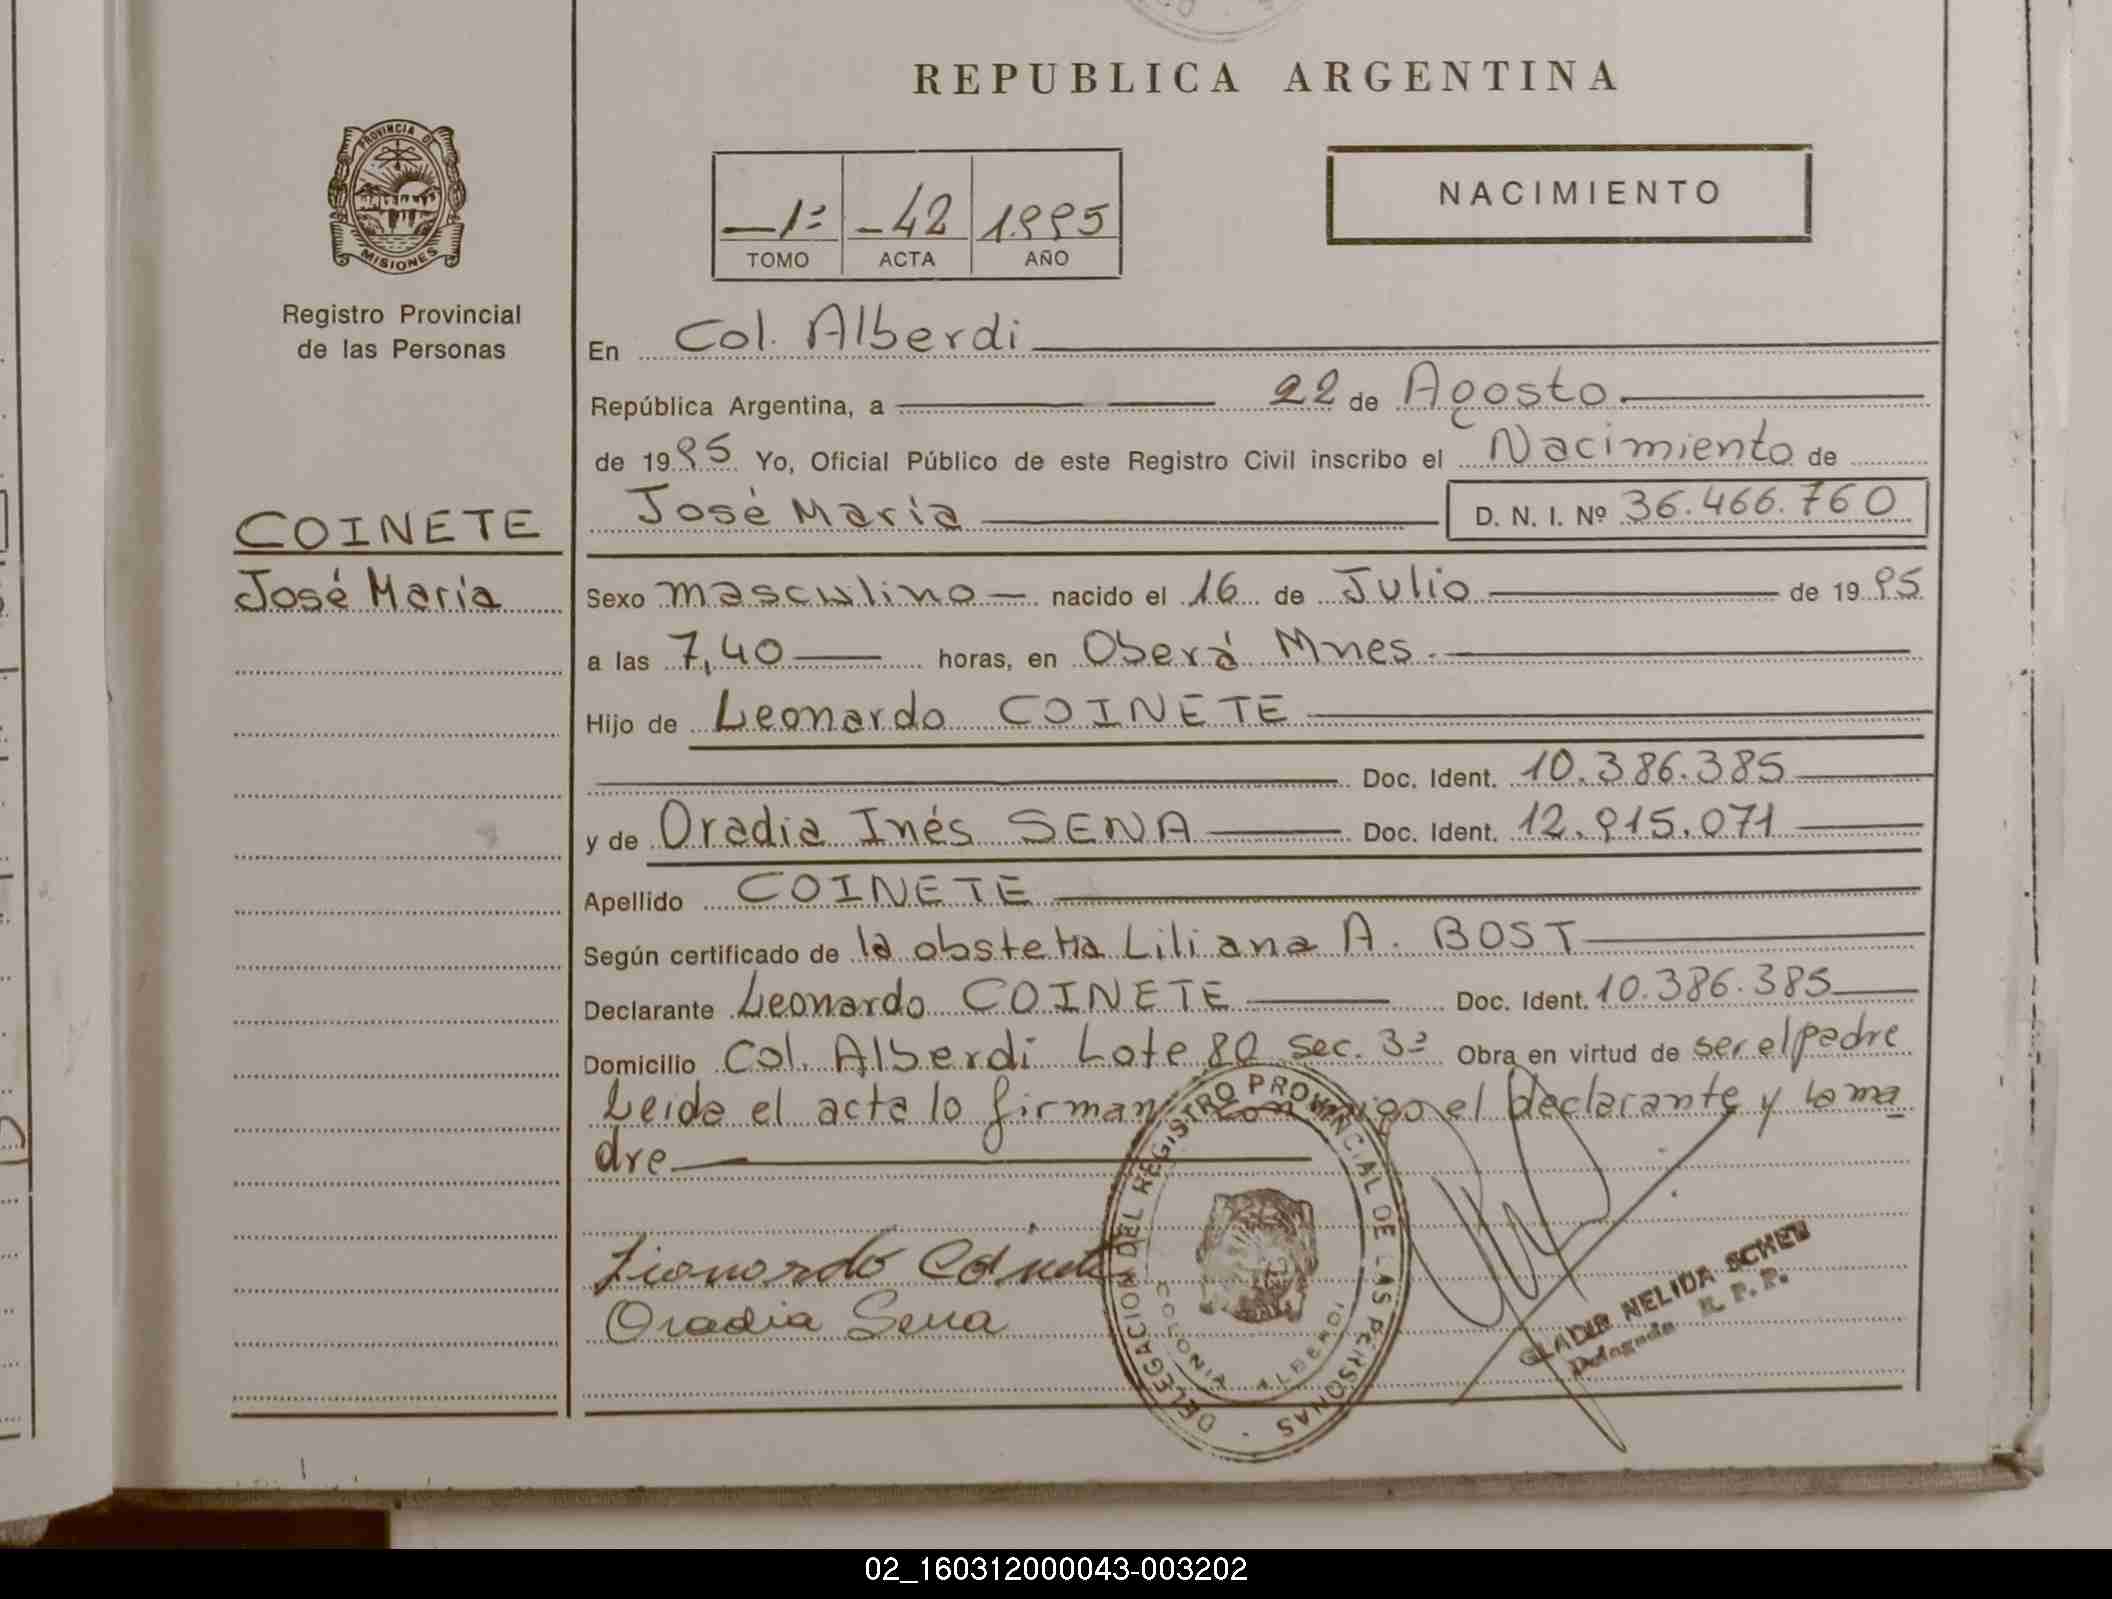 REPUBLICA ARGENTINA
PROVINCIA DE MISIONES
Registro Provincial
de las Personas
1º 42 1995
TOMO ACTA AÑO
NACIMIENTO
En Col. Alberdi
República Argentina, a 22 de Agosto
de 1995 Yo, Oficial Público de este Registro Civil inscribo el Nacimiento de
José María D. N. I. Nº 36.466.760
COINETE
José María
Sexo masculino nacido el 16 de Julio de 1995
a las 7,40 horas, en Oberá Mnes.
Hijo de Leonardo COINETE
Doc. Ident. 10.386.385
y de Oradia Inés SENA Doc. Ident. 12.915.071
Apellido COINETE
Según certificado de la obstetra Liliana A. BOST
Declarante Leonardo COINETE Doc. Ident. 10.386.385
Domicilio Col. Alberdi Lote 80 sec. 3ª Obra en virtud de ser el padre
Leida el acta lo firman conmigo el declarante y la ma
dre
DELEGACION DEL REGISTRO PROVINCIAL DE LAS PERSONAS
COLONIA ALBERDI
Lionardo Coinete
Oradia Sena
GLADIS NELIDA
Delegada R. P. P.
02_160312000043-003202